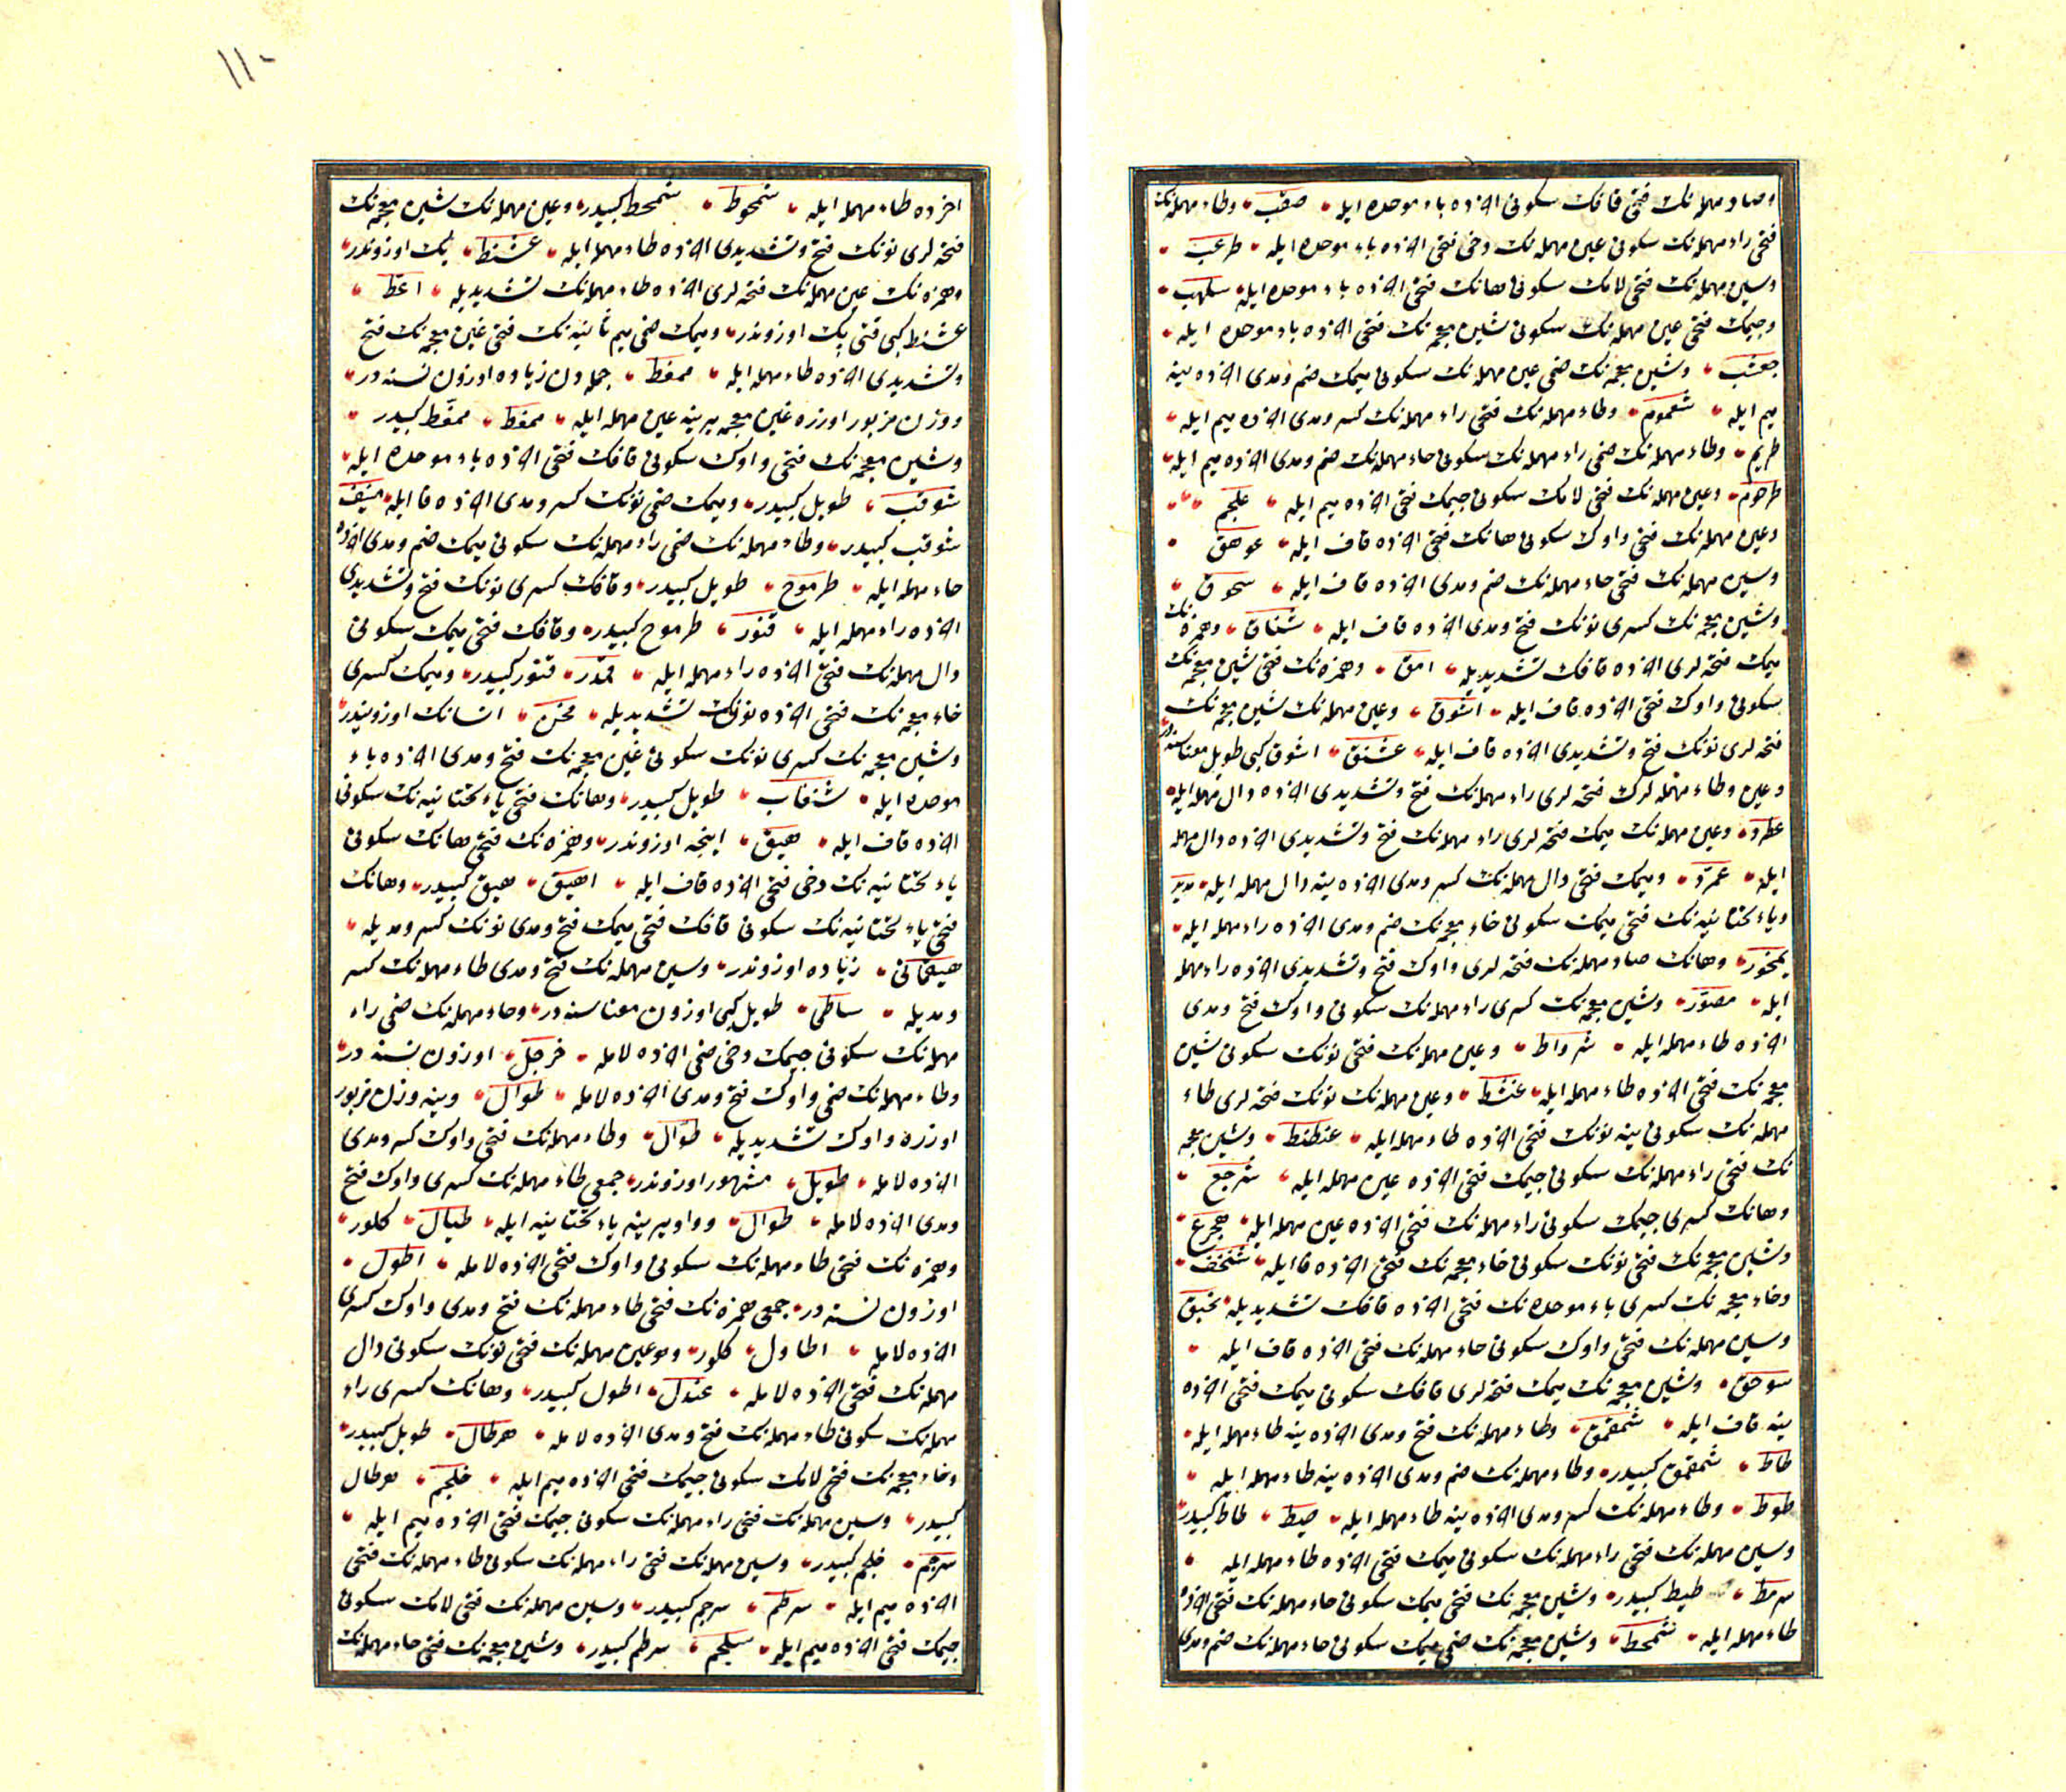 وصاد مهمله‌نك فتحى قافك سكونى اخرده باء موحده ايله صقب وطاء مهمله‌نك
فتحى راء مهمله‌نك سكونى عين مهمله‌نك دخى فتحى اخرده باء موحده ايله طرعب
وسين مهمله‌نك فتحى لامك سكونى هانك فتحى اخرده باء موحده ايله سلهب
وجيمك فتحى عين مهمله‌نك سكونى شين معجمه‌نك فتحى اخرده باء موحده ايله
جعشب وشين معجمه‌نك ضمى عين مهمله‌نك سكونى ميمك ضم ومدى اخرده ينه
ميم ايله شعموم وطاء مهمله‌نك فتحى راء مهمله‌نك كسر ومدى اخرده ميم ايله
طريم وطاء مهمله‌نك ضمى راء مهمله‌نك سكونى حاء مهمله‌نك ضم ومدى اخرده ميم ايله
طرحوم وعين مهمله‌نك فتحى لامك سكونى جيمك فتحى اخرده ميم ايله علجم
وعين مهمله‌نك فتحى واوك سكونى هانك فتحى اخرده قاف ايله عوهق
وسين مهمله‌نك فتحى حاء مهمله‌نك ضم ومدى اخرده قاف ايله سحوق
وشين معجمه‌نك كسرى نونك فتح ومدى اخرده قاف ايله شناق وهمزه‌نك
ميمك فتحه‌لرى اخرده قافك تشديديله امق وهمزه‌نك فتحى شين معجمه‌نك
سكونى واوك فتحى اخرده قاف ايله اشوق وعين مهمله‌نك شين معجمه‌نك
فتحه‌لرى نونك فتح وتشديدى اخرده قاف ايله عشنق اشوق كبى طويل معناسنه‌در
وعين وطاء مهمله‌لرك فتحه‌لرى راء مهمله‌نك فتح وتشديدى اخرده دال مهمله ايله
عطرد وعين مهمله‌نك ميمك فتحه‌لرى راء مهمله‌نك فتح وتشديدى اخرده دال مهمله
ايله عمرد وميمك فتحى دال مهمله‌نك كسر ومدى اخرده ينه دال مهمله ايله مديد
وياء تحتانيه‌نك فتحى ميمك سكونى خاء معجمه‌نك ضم ومدى اخرده راء مهمله ايله
يمخور وهانك صاد مهمله‌نك فتحه‌لرى واوك فتح وتشديدى اخرده راء مهمله
ايله هصور وشين معجمه‌نك كسرى راء مهمله‌نك سكونى واوك فتح ومدى
اخرده طاء مهمله ايله شرواط وعين مهمله‌نك فتحى نونك سكونى شين
معجمه‌نك فتحى اخرده طاء مهمله ايله عنشط وعين مهمله‌نك نونك فتحه‌لرى طاء
مهمله‌نك سكونى ينه نونك فتحى اخرده طاء مهمله ايله عنطنط وشين معجمه
نك فتحى راء مهمله‌نك سكونى جيمك فتحى اخرده عين مهمله ايله شرجع
وهانك كسرى جيمك سكونى راء مهمله‌نك فتحى اخرده عين مهمله ايله هجرع
وشين معجمه‌نك فتحى نونك سكونى خاء معجمه‌نك فتحى اخرده فا ايله شنخف
وخاء معجمه‌نك كسرى باء موحده‌نك فتحى اخرده قافك تشديديله خبق
وسين مهمله‌نك فتحى واوك سكونى حاء مهمله‌نك فتحى اخرده قاف ايله
سوحق وشين معجمه‌نك ميمك فتحه‌لرى قافك سكونى ميمك فتحى اخرده
ينه قاف ايله شمقمق وطاء مهمله‌نك فتح ومدى اخرده ينه طاء مهمله ايله
طاط شمقمق كبيدر وطاء مهمله‌نك ضم ومدى اخرده ينه طاء مهمله ايله
طوط وطاء مهمله‌نك كسر ومدى اخرده ينه طاء مهمله ايله طيط طاط كبيدر
وسين مهمله‌نك فتحى راء مهمله‌نك سكونى ميمك فتحى اخرده طاء مهمله ايله
سرمط طيط كبيدر وشين معجمه‌نك فتحى ميمك سكونى حاء مهمله‌نك فتحى اخرده
طاء مهمله ايله شمحط وشين معجمه‌نك ضمى ميمك سكونى حاء مهمله‌نك ضم ومدى
١١٠
اخرده طاء مهمله ايله شمحوط شمحط كبيدر وعين مهمله‌نك شين معجمه‌نك
فتحه‌لرى نونك فتح وتشديدى اخرده طاء مهمله ايله عشنط پك اوزوندر
وهمزه‌نك عين مهمله‌نك فتحه‌لرى اخرده طاء مهمله‌نك تشديديله اعط
عشنط كبى قتى پك اوزوندر وميمك ضمى ميم ثانيه‌نك فتحى غين معجمه‌نك فتح
وتشديدى اخرده طاء مهمله ايله ممغط جمله‌دن زياده اوزون نسنه‌در
ووزن مزبور اوزره غين معجمه يرينه عين مهمله ايله ممعط ممغط كبيدر
وشين معجمه‌نك فتحى واوك سكونى قافك فتحى اخرده باء موحده ايله
شوقب طويل كبيدر وميمك ضمى نونك كسر ومدى اخرده فا ايله منيف
شوقب كبيدر وطاء مهمله‌نك ضمى راء مهمله‌نك سكونى ميمك ضم ومدى اخرده
حاء مهمله ايله طرموح طويل كبيدر وقافك كسرى نونك فتح وتشديدى
اخرده راء مهمله ايله قنور طرموح كبيدر وقافك فتحى ميمك سكونى
دال مهمله‌نك فتحى اخرده راء مهمله ايله قمدر قنور كبيدر وميمك كسرى
خاء معجمه‌نك فتحى اخرده نونك تشديديله مخن انسانك اوزونيدر
وشين معجمه‌نك كسرى نونك سكونى غين معجمه‌نك فتح ومدى اخرده باء
موحده ايله شنغاب طويل كبيدر وهانك فتحى ياء تحتانيه‌نك سكونى
اخرده قاف ايله هيق اينجه اوزوندر وهمزه‌نك فتحى هانك سكونى
ياء تحتانيه‌نك دخى فتحى اخرده قاف ايله اهيق هيق كبيدر وهانك
فتحى ياء تحتانيه‌نك سكونى قافك فتحى ميمك فتح ومدى نونك كسر ومديله
هيقمانى زياده اوزوندر وسين مهمله‌نك فتح ومدى طاء مهمله‌نك كسر
ومديله ساطى طويل كبى اوزون معناسنه‌در وحاء مهمله‌نك ضمى راء
مهمله‌نك سكونى جيمك دخى ضمى اخرده لامله حرجل اوزون نسنه‌در
وطاء مهمله‌نك ضمى واوك فتح ومدى اخرده لامله طوال وينه وزن مزبور
اوزره واوك تشديديله طوال وطاء مهمله‌نك فتحى واوك كسر ومدى
اخرده لامله طويل مشهور اوزوندر جمعى طاء مهمله‌نك كسرى واوك فتح
ومدى اخرده لامله طوال وواو يرينه ياء تحتانيه ايله طيال كلور
وهمزه‌نك فتحى طاء مهمله‌نك سكونى واوك فتحى اخرده لامله اطول
اوزون نسنه‌در جمعى همزه‌نك فتحى طاء مهمله‌نك فتح ومدى واوك كسرى
اخرده لامله اطاول كلور وعين مهمله‌نك فتحى نونك سكونى دال
مهمله‌نك فتحى اخرده لامله عندل اطول كبيدر وهانك كسرى راء
مهمله‌نك سكونى طاء مهمله‌نك فتح ومدى اخرده لامله هرطال طويل كبيدر
وخاء معجمه‌نك فتحى لامك سكونى جيمك فتحى اخرده ميم ايله خلجم هرطال
كبيدر وسين مهمله‌نك فتحى راء مهمله‌نك سكونى جيمك فتحى اخرده ميم ايله
سرجم خلجم كبيدر وسين مهمله‌نك فتحى راء مهمله‌نك سكونى طاء مهمله‌نك فتحى
اخرده ميم ايله سرطم سرجم كبيدر وسين مهمله‌نك فتحى لامك سكونى
جيمك فتحى اخرده ميم ايله سلجم سرطم كبيدر وشين معجمه‌نك فتحى حاء مهمله‌نك